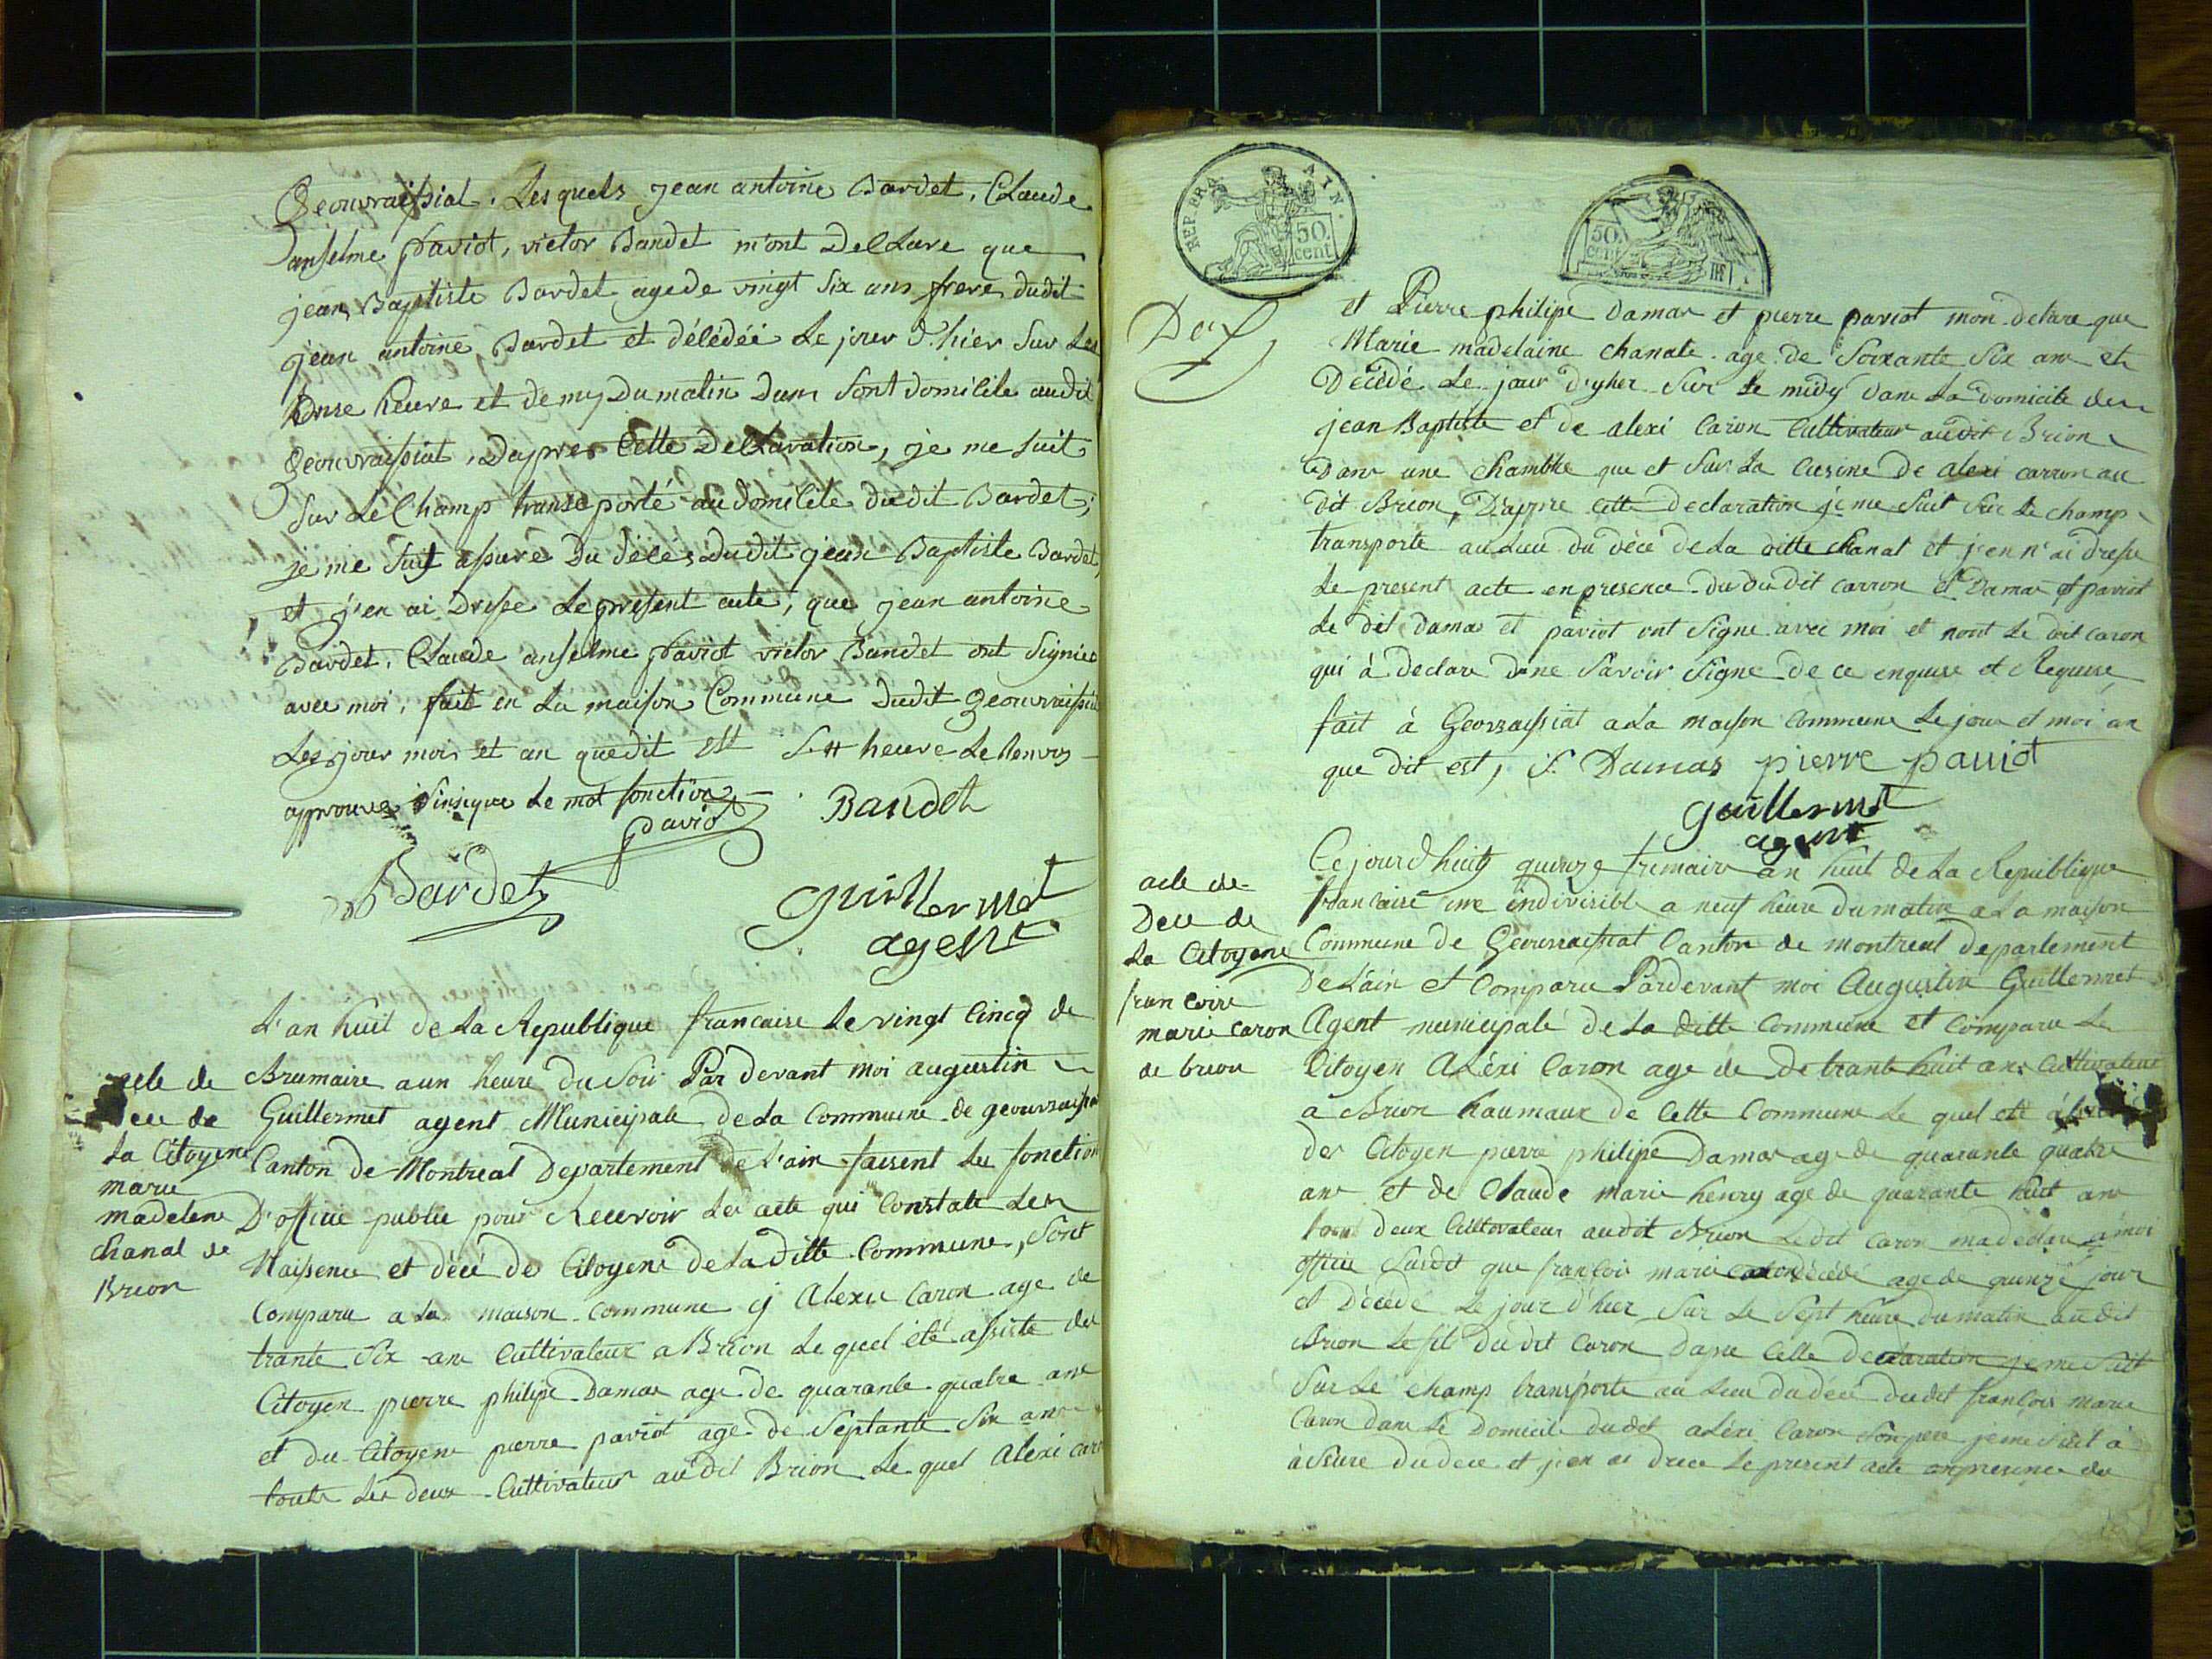 Geouvraissiat. Les quels jean antoine Bardet, Claude
anselme paviot, victor Bandet m'ont Declare que
jean Baptiste Bardet age de vingt six ans frere dudit
jean antoine Bardet et délédéé Le jour d'hier sur Les
onse heure et demy Du matin dans sont domicile audit
Geouvraissiat, Dapres Cette Declaration, je me suit
sur Le Champ transeporté au domicile dudit Bardet;
je me suit assure Du délés Dudit jean Baptiste Bardet,
et j'en ai Dresee Le present acte, que jean antoine
Bardet, Claude anselme paviot victor Bandet ont Signiee
avec moi, fait en La maison Commune dudit geouvraissiat
Les jour mois et an quedit Est Sett heure Le Renvoy
approuve Le mot fonction
paviot Bandet
Bardet guillermet
agent
acte de
Dece de
La Citoyene
marie
madelene
chanal de
Brion
L'an huit de La Republique francaise Le vingt cincq de
Brumaire a un heure du Soir Par devant moi augustin
Guillermet agent Municipale de La Commune de geouvraissia
Canton de Montreal Departement de L'ain faisent Les fonction
D'office public pour Recevoir Les acte qui Constate Les
Naissence et décé de Citoyene de La ditte Commune, Sont
Comparu a La maison commune cj Alexie Caron age de
trante Six ans Cultivateur a Brion Le quel été assiste des
Citoyen pierre philipe Damas age de quarante quatre ans
et du Citoyene pierre paviot age de Septante Six ans
toute Les deux Cultivateur audit Brion Le quel Alexi caro
REP. FRA AIN.
50 cent
50 cent
et Pierre philipe Damas et pierre paviot mon declare que
Marie madelaine chanale age de Soixante Six ans et
Décédé Le jour d'yher Sur Le midy dans La domicile de
jean Baptiste et de alexi Caron Cultivateur audit Brion
Dans une chambre que et Sur La Cusine de alexi carron au
dit Brion, D'aprrie cette Declaration je me Suit Sur Le champ
transporte au Lieu du déce de La ditte chanal et j'en n'ai dresse
Le present acte en presence du dudit carron et Damas et paviot
Le dit damas et paviot ont Signe avec moi et nont Le dit caron
qui à declare dene Savoir Signe de ce enquise et Requise
fait à Geovraissiat a La maison Commune Le jour et moi an
que dit est, P. Damas pierre paviot
guillermet
agent
acte de
Dece de
La Citoyene
francoire
marie caron
de brion
Ce jourdhuit quinze frimaire an huit de La Republique
francaise une indivisible a neuf heure du matin a La maison
Commune de Geouvraissiat Canton de montreal departement
De Lain et Comparu Pardevant moi Augustin Guillermet
Agent municipale de La ditte Commune et Comparu Le
Citoyen ALéxi Caron age de De trante huit ans Cultivateur
à Brion haumaux de Cette Commune Le quel eté
des Citoyen pierre philipe Damas age de quarante quatre
ans et de Claude marie henry age de quarante huit ans
tous deux Cultivateur audit Brion Ledit Caron ma declare a moi
officie Susdit que françoi marie caron décédé age de quinze jour
et Décédé Le jour d'hier Sur Le Sept heure du matin audit
Brion Le fil dudit Caron Dapre Cette declaration je me Suit
Sur Le champ transporte au Lieu du décé dudit françois marie
Caron dans Le Domicile dudit aLéxi Caron Son pere je me Suit à
àssure du dece et j'en ai drece Le present acte en presence du